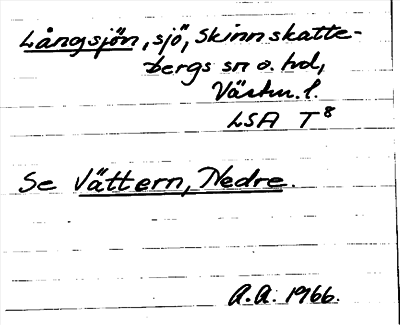 Långsjön, sjö, Skinnskatte-
bergs sn o. hd,
Västm. l.
LSA T⁸
Se Vättern, Nedre.
A.A. 1966.